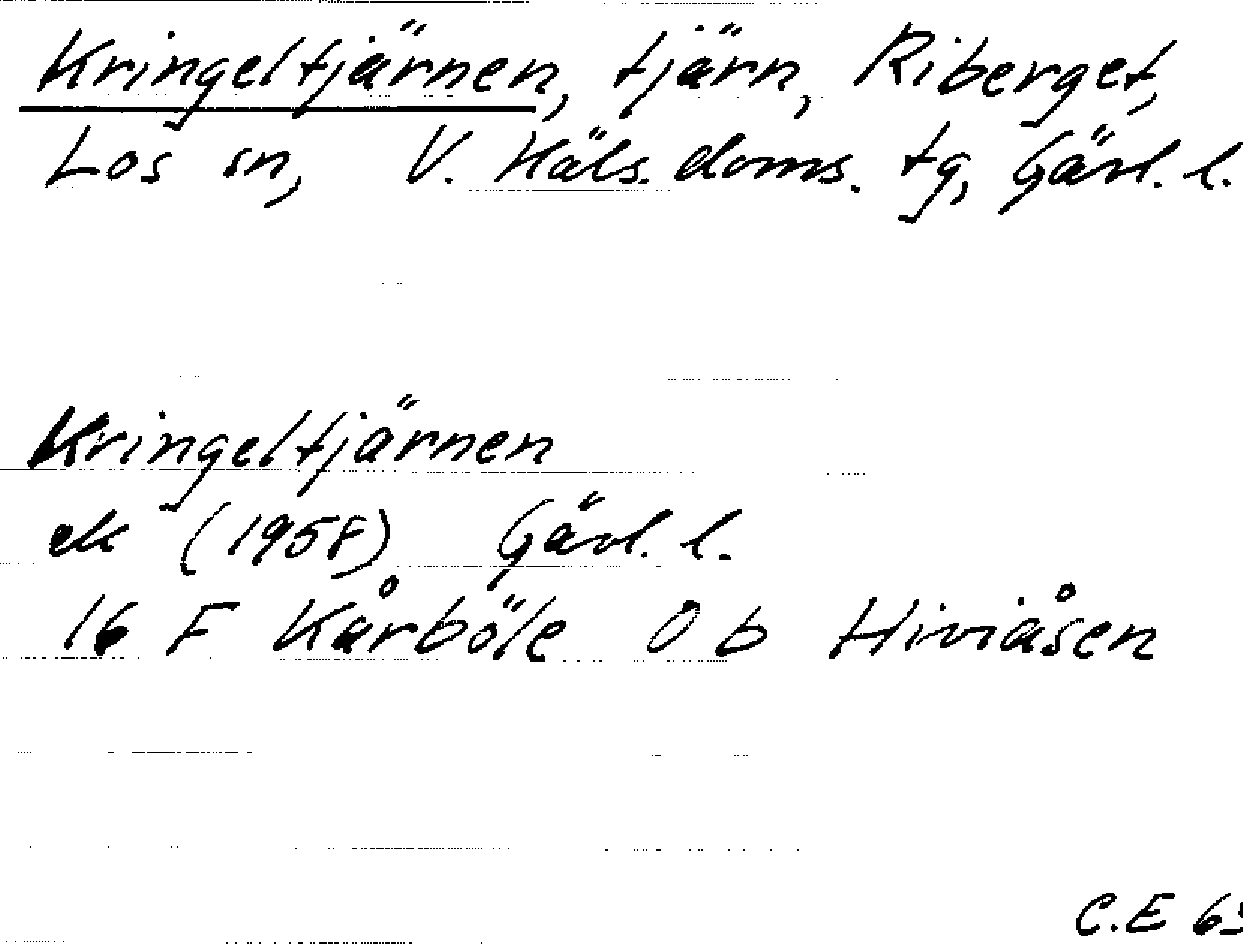 Kringeltjärnen, tjärn, Riberget,
Los sn, V. Häls. doms. tg, Gävl. l.
Kringeltjärnen
ek (1958) Gävl. l.
16 F Kårböle 0 b Hiviåsen
C.E